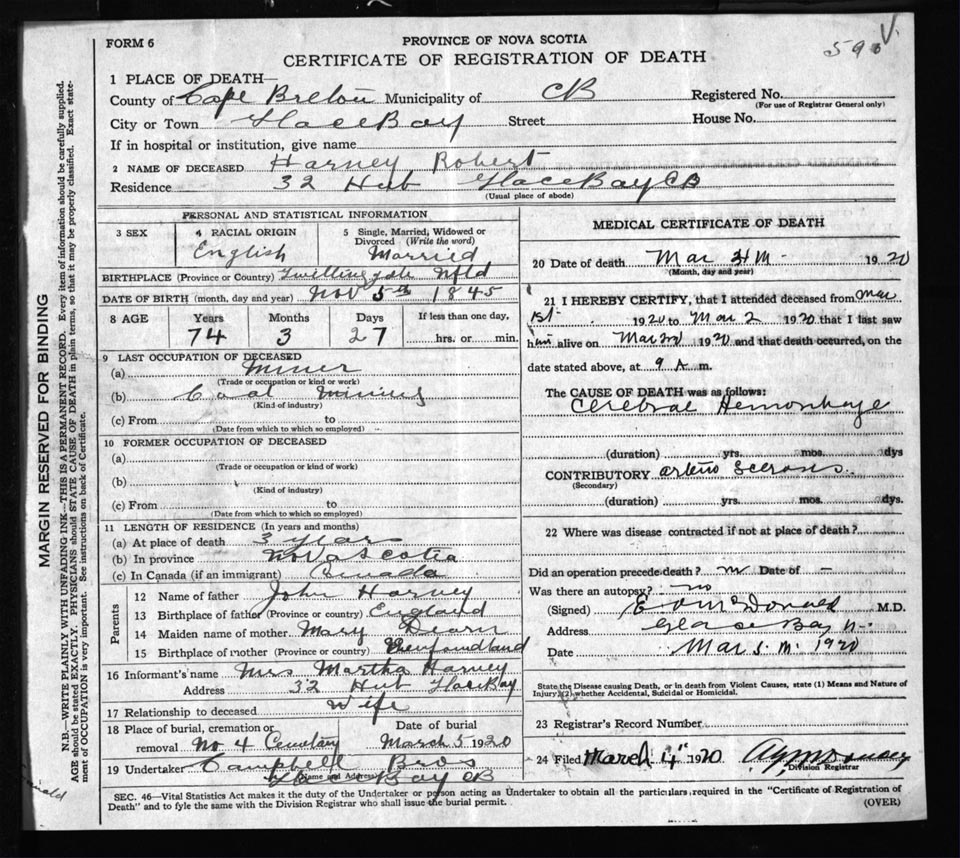 FORM 6
PROVINCE OF NOVA SCOTIA
CERTIFICATE OF REGISTRATION OF DEATH
1 PLACE OF DEATH—
County of Cape Breton Municipality of CB Registered No.
(For use of Registrar General only)
City or Town Glace Bay Street House No.
If in hospital or institution, give name
2 NAME OF DECEASED Harney Robert
Residence 32 Hub Glace Bay CB
(Usual place of abode)
PERSONAL AND STATISTICAL INFORMATION
3 SEX 4 RACIAL ORIGIN 5 Single, Married, Widowed or
Divorced (Write the word)
English Married
BIRTHPLACE (Province or Country) Twillingate Nfld
DATE OF BIRTH (month, day and year) Nov 5th 1845
8 AGE Years Months Days If less than one day,
74 3 27 hrs. or min.
9 LAST OCCUPATION OF DECEASED
(a) Miner
(Trade or occupation or kind or work)
(b) Coal Mining
(Kind of industry)
(c) From to
(Date from which to which so employed)
10 FORMER OCCUPATION OF DECEASED
(a)
(Trade or occupation or kind of work)
(b)
(Kind of industry)
(c) From to
(Date from which to which so employed)
11 LENGTH OF RESIDENCE (In years and months)
(a) At place of death 3 year
(b) In province Nova Scotia
(c) In Canada (if an immigrant) Canada
Parents
12 Name of father John Harney
13 Birthplace of father (Province or country) England
14 Maiden name of mother Mary Dearn
15 Birthplace of mother (Province or country) Newfoundland
16 Informant's name Mrs Martha Harney
Address 32 Hub Glace Bay
17 Relationship to deceased Wife
18 Place of burial, cremation or Date of burial
removal No 4 Cemetary March 5 1920
19 Undertaker Campbell Bros
(Name and Address)
Glace Bay CB
MEDICAL CERTIFICATE OF DEATH
20 Date of death Mar 1920
(Month, day and year)
21 I HEREBY CERTIFY, that I attended deceased from Mar
1st 1920 to Mar 2 1920 that I last saw
him alive on Mar 2nd 1920 and that death occurred, on the
date stated above, at 9 A m.
The CAUSE OF DEATH was as follows:
Cerebral Hemorrhage
(duration) yrs. mos. dys
CONTRIBUTORY arterio Sclerosis
(Secondary)
(duration) yrs. mos. dys.
22 Where was disease contracted if not at place of death?
Did an operation precede death? no Date of –
Was there an autopsy? no
(Signed) McDonald M.D.
Address Glace Bay
Date Mar 1920
State the Disease causing Death, or in death from Violent Causes, state (1) Means and Nature of
Injury, (2) whether Accidental, Suicidal or Homicidal.
23 Registrar's Record Number
24 Filed March 4th 1920
Division Registrar
SEC. 46—Vital Statistics Act makes it the duty of the Undertaker or person acting as Undertaker to obtain all the particulars required in the "Certificate of Registration of
Death" and to fyle the same with the Division Registrar who shall issue the burial permit.
(OVER)
MARGIN RESERVED FOR BINDING
N.B.—WRITE PLAINLY WITH UNFADING INK—THIS IS A PERMANENT RECORD. Every item of information should be carefully supplied.
AGE should be stated EXACTLY. PHYSICIANS should STATE CAUSE OF DEATH in plain terms, so that it may be properly classified. Exact state-
ment of OCCUPATION is very important. See instructions on back of Certificate.